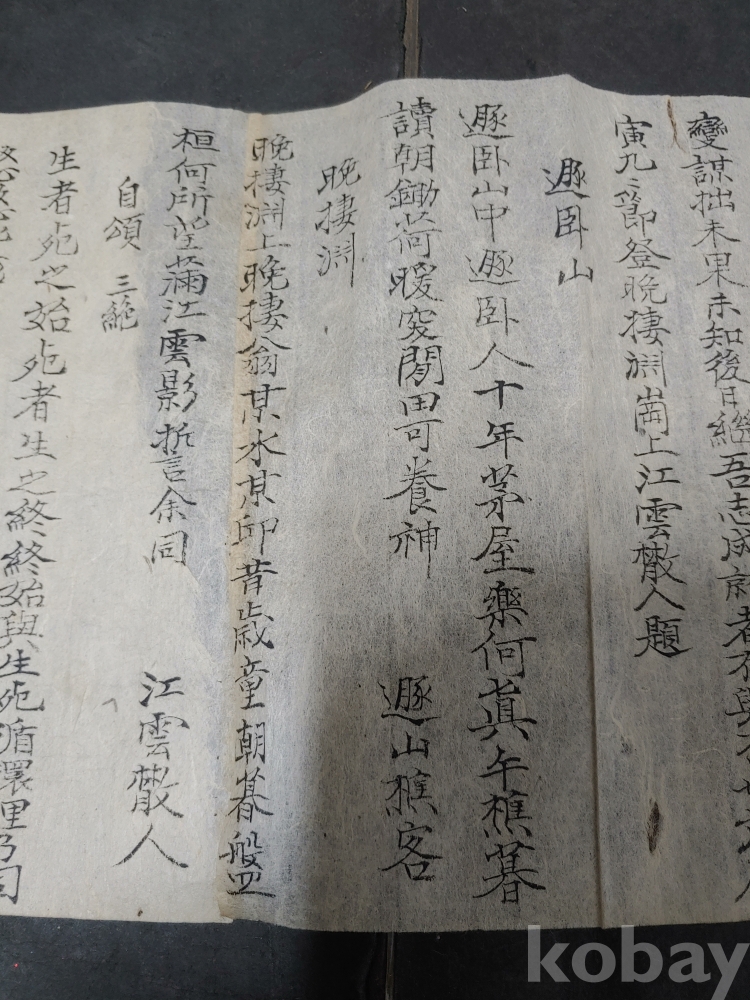 變謀拙未果未知後日繼吾志成就者
寅九〻節登晩捿淵崗上江雲散人題
遯卧山
遯卧山中遯卧人十年茅屋樂何眞午樵暮
讀朝鋤荷暖突閒田可養神 遯山樵客
晩捿淵
晩捿淵上晩捿翁某水某邱昔歲童朝暮盤
桓何所望滿江雲影哲言余同 江雲散人
自頌 三絶
生者死之始死者生之終終始與生死循環理乃同
kobay